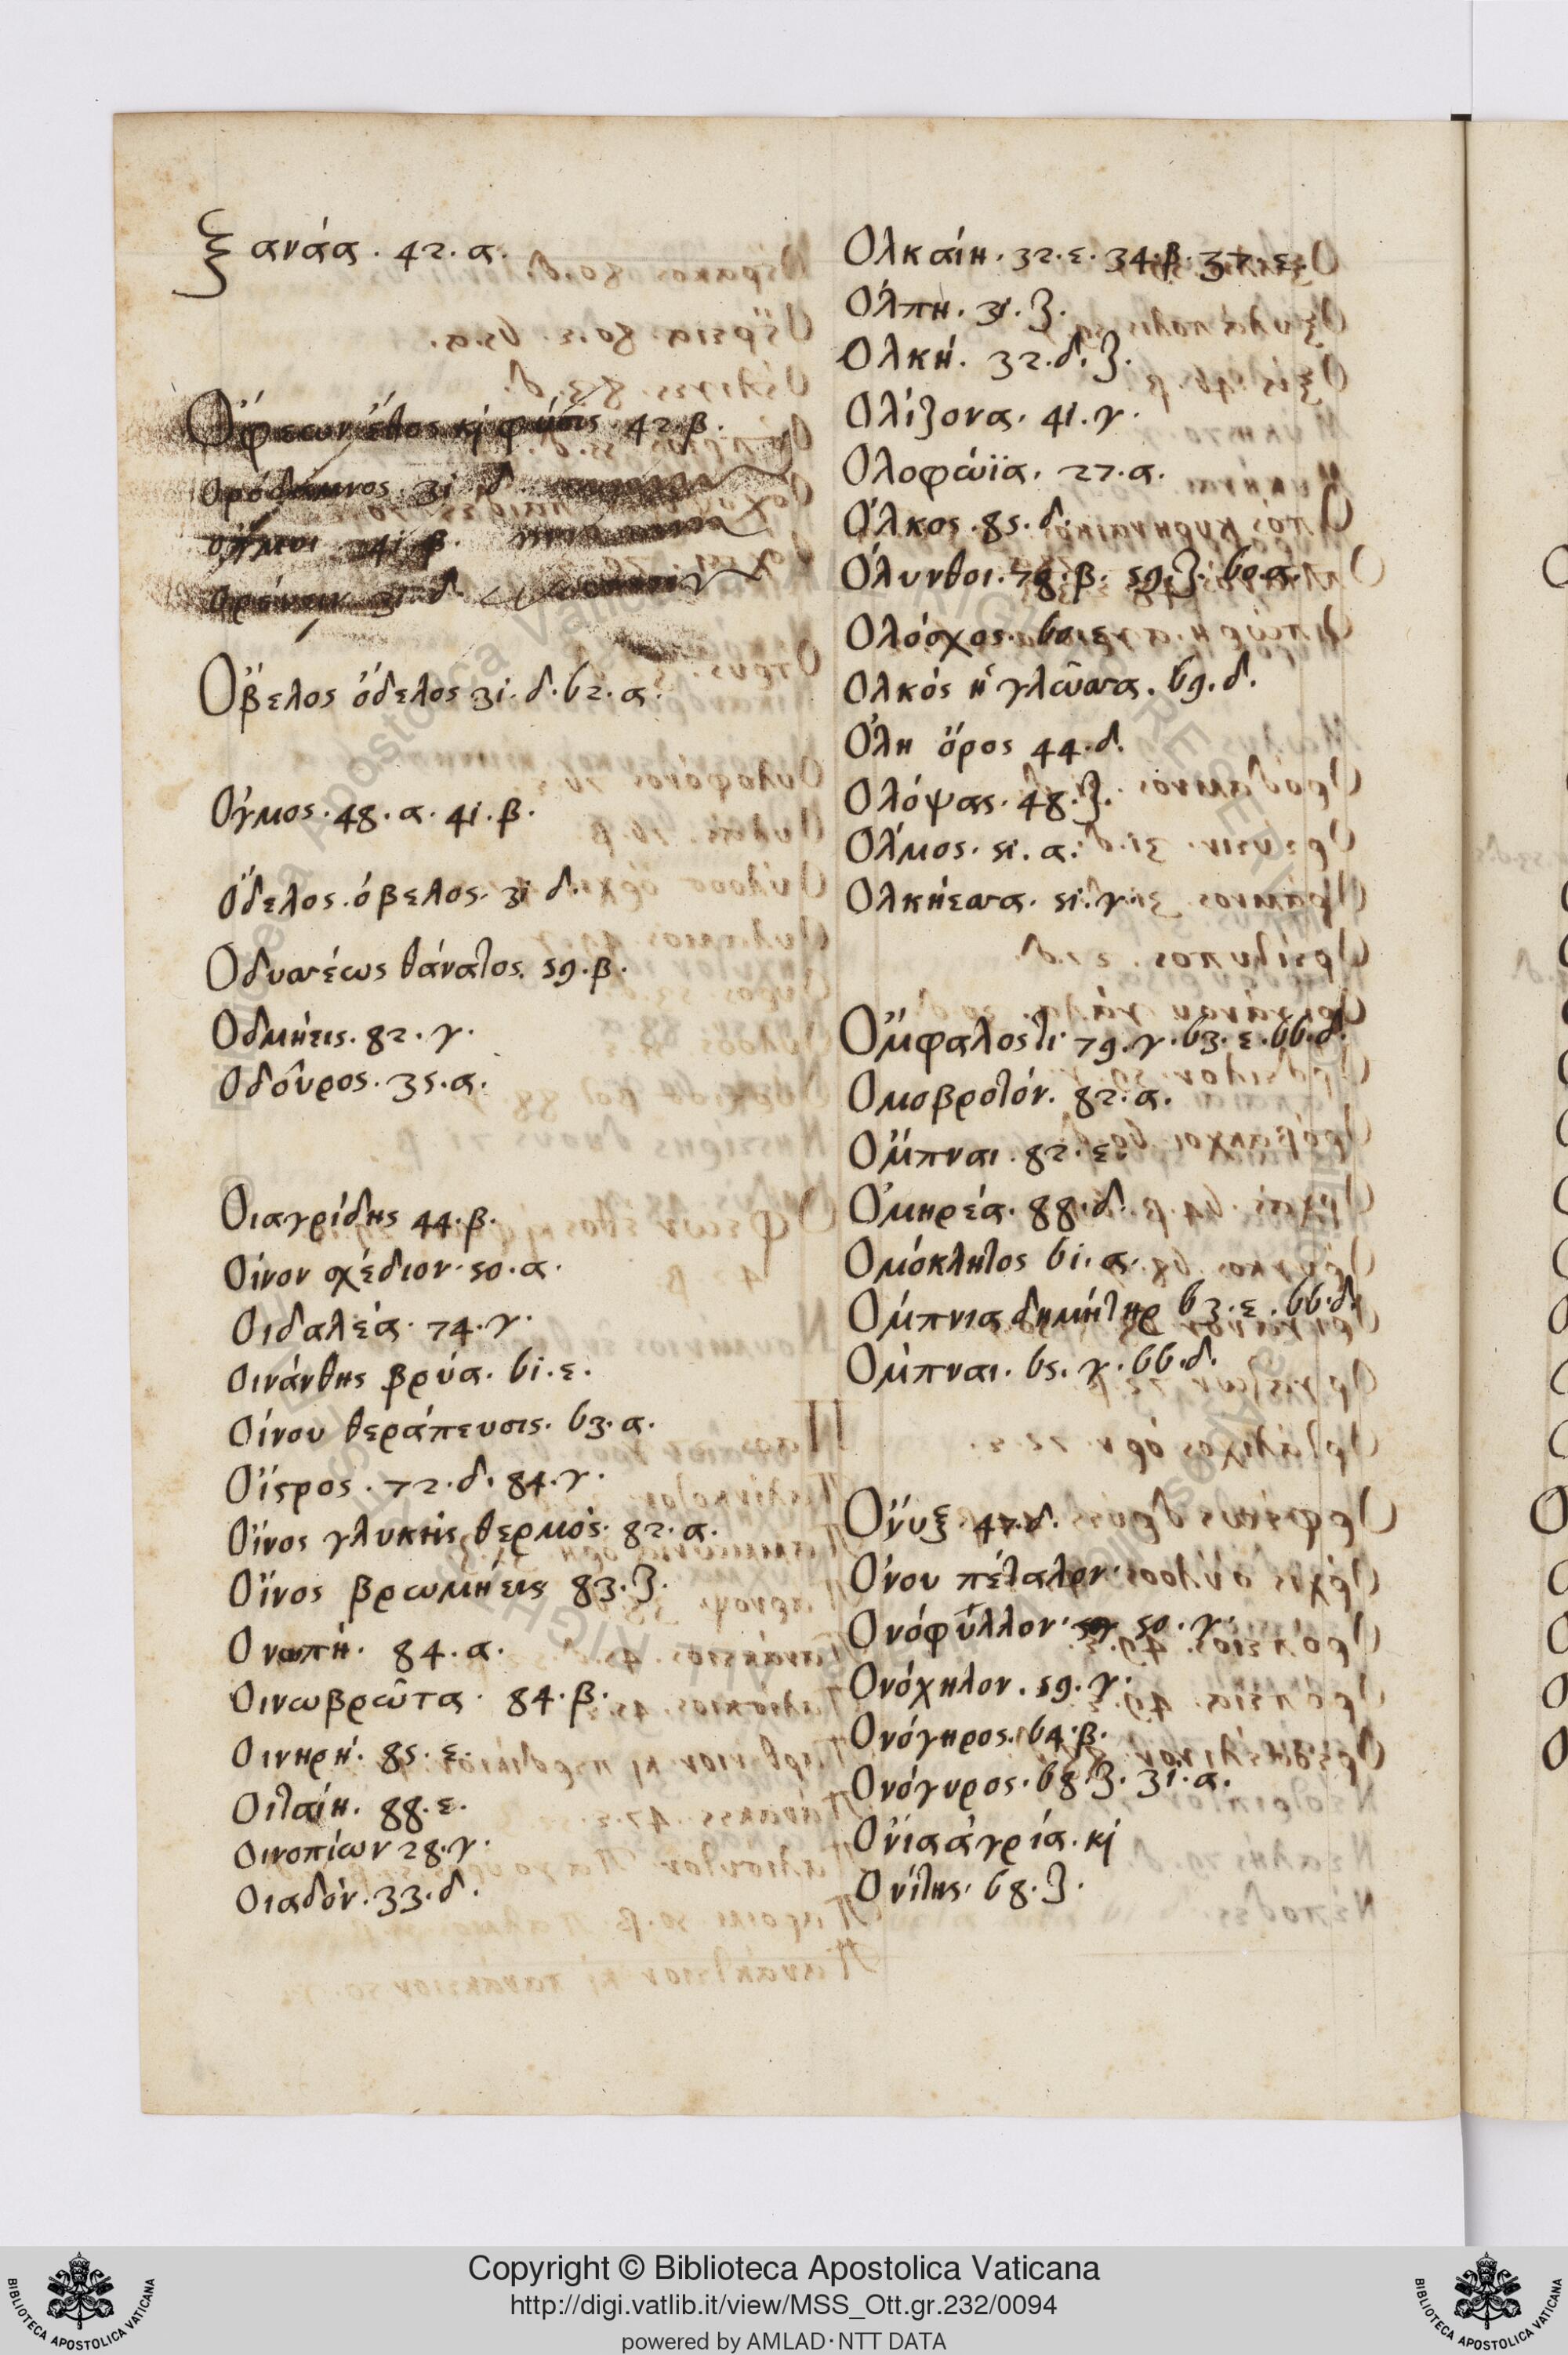 ξανάα. 42. α.
Ὄφεων ἔθος κὶ φύσις. 42. β.
ορόδαμνος. 31 δ
ὄγμοι 41 β.
ορούειν 31 δ.
Ὄβελος ὀδελος 31. δ. 62. α.
Ογμος. 48. α. 41. β.
Ὄδελος. ὀβελος. 31 δ.
Οδυσσέως θάνατος. 59. β.
Οδμήεις. 82. γ.
Οδοῦρος. 35. α.
Οιαγρίδης 44. β.
Οίνον σχέδιον. 50. α.
Οιδαλεά. 74. γ.
Οινάνθης βρύα. 61. ε.
Οίνου θεράπευσις. 63. α.
Οἴστρος. 72. δ. 84. γ.
Οἴνος γλυκὺς θερμός. 82. α.
Οἴνος βρωμήεις 83. ζ.
Ονωπή. 84. α.
Οινωβρῶτα. 84. β.
Οινηρή. 85. ε.
Οιταίη. 88. ε.
Οινοπίων 28. γ.
Οιαδόν. 33. δ.
Ολκαίη. 32. ε. 34. β. 37. ε.
Ολπη. 31. ζ.
Ολκή. 32. δ. ζ.
Ολίζονα. 41. γ.
Ολοφώϊα. 27. α.
Ὅλκος. 85. δ.
Ὄλυνθοι. 78. β. 59. ζ. 60. α.
Ολόσχος. 60. ε
Ολκός ἡ γλῶσσα. 69. δ.
Ὄλη ὄρος 44. δ.
Ολόψας. 48. ζ.
Ολμος. 51. α.
Ολκήεσσα. 51. γ.
Ὄμφαλοστι 79. γ. 63. ε. 66. δ.
Ομοβροτόν. 82. α.
Ὄμπναι. 82. ε.
Ὁμηρεά. 88. δ.
Ομόκλητος 61. α.
Ομπνια δημήτηρ 63. ε. 66. δ.
Ομπναι. 65. γ. 66. δ.
Ὄνυξ. 47. δ.
Ὄνου πέταλον.
Ονόφυλλον. 50. γ.
Ονόχηλον. 59. γ.
Ονόγηρος. 64. β.
Ονόγυρος. 68. ζ. 31. α.
Ονίααγρία. κὶ
Ονίτης. 68. ζ.
Copyright © Biblioteca Apostolica Vaticana
http://digi.vatlib.it/view/MSS_Ott.gr.232/0094
powered by AMLAD·NTT DATA
BIBLIOTECA APOSTOLICA VATICANA
BIBLIOTECA APOSTOLICA VATICANA